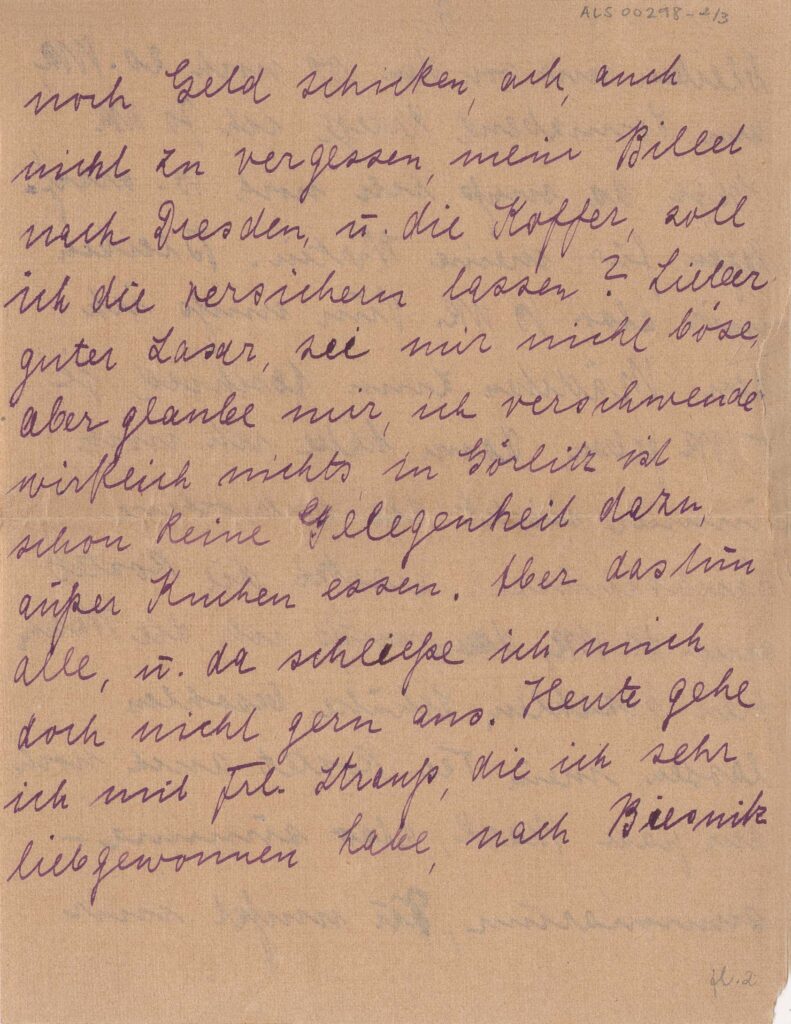 ALS 00298-2/3
noch Geld schicken, ach, auch
nicht zu vergessen, mein Billet
nach Dresden, u. die Koffer, soll
ich die versichern lassen? Lieber
guter Lasar, sei mir nicht böse,
aber glaube mir, ich verschwende
wirklich nichts, in Görlitz ist
schon keine Gelegenheit dazu,
außer Kuchen essen. Aber das tun
alle, u. da schließe ich mich
doch nicht gern aus. Heute gehe
ich mit Frl. Strauß, die ich sehr
liebgewonnen habe, nach Biesnitz
fl. 2